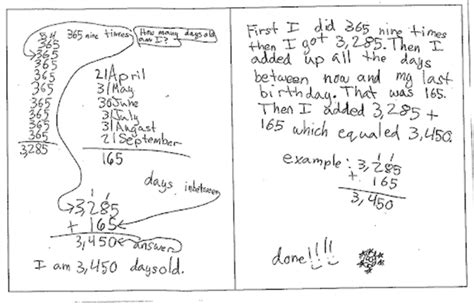 34
365
365
365
365
365
365
365
365
365
3,285
365 nine times
How many days old
am I?
21 April
31 May
30 June
31 July
31 August
21 September
165
days inbetween
3,285
+ 165
3,450 answer
I am 3,450 days old.
First I did 365 nine times
then I got 3,285. Then I
added up all the days
between now and my last
birthday. That was 165.
Then I added 3,285 +
165 which equaled 3,450.
example: 3,285
+ 165
3,450
done!!!!